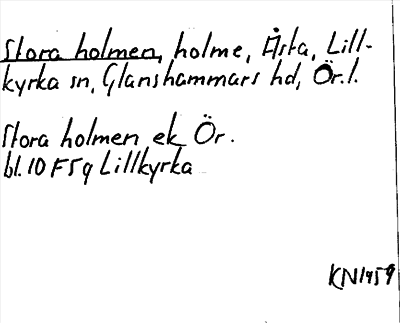 Stora holmen, holme, Åsta, Lill-
kyrka sn, Glanshammars hd, Ör.l.
Stora holmen ek Ör.
bl. 10 F 5 g Lillkyrka
KN 1959